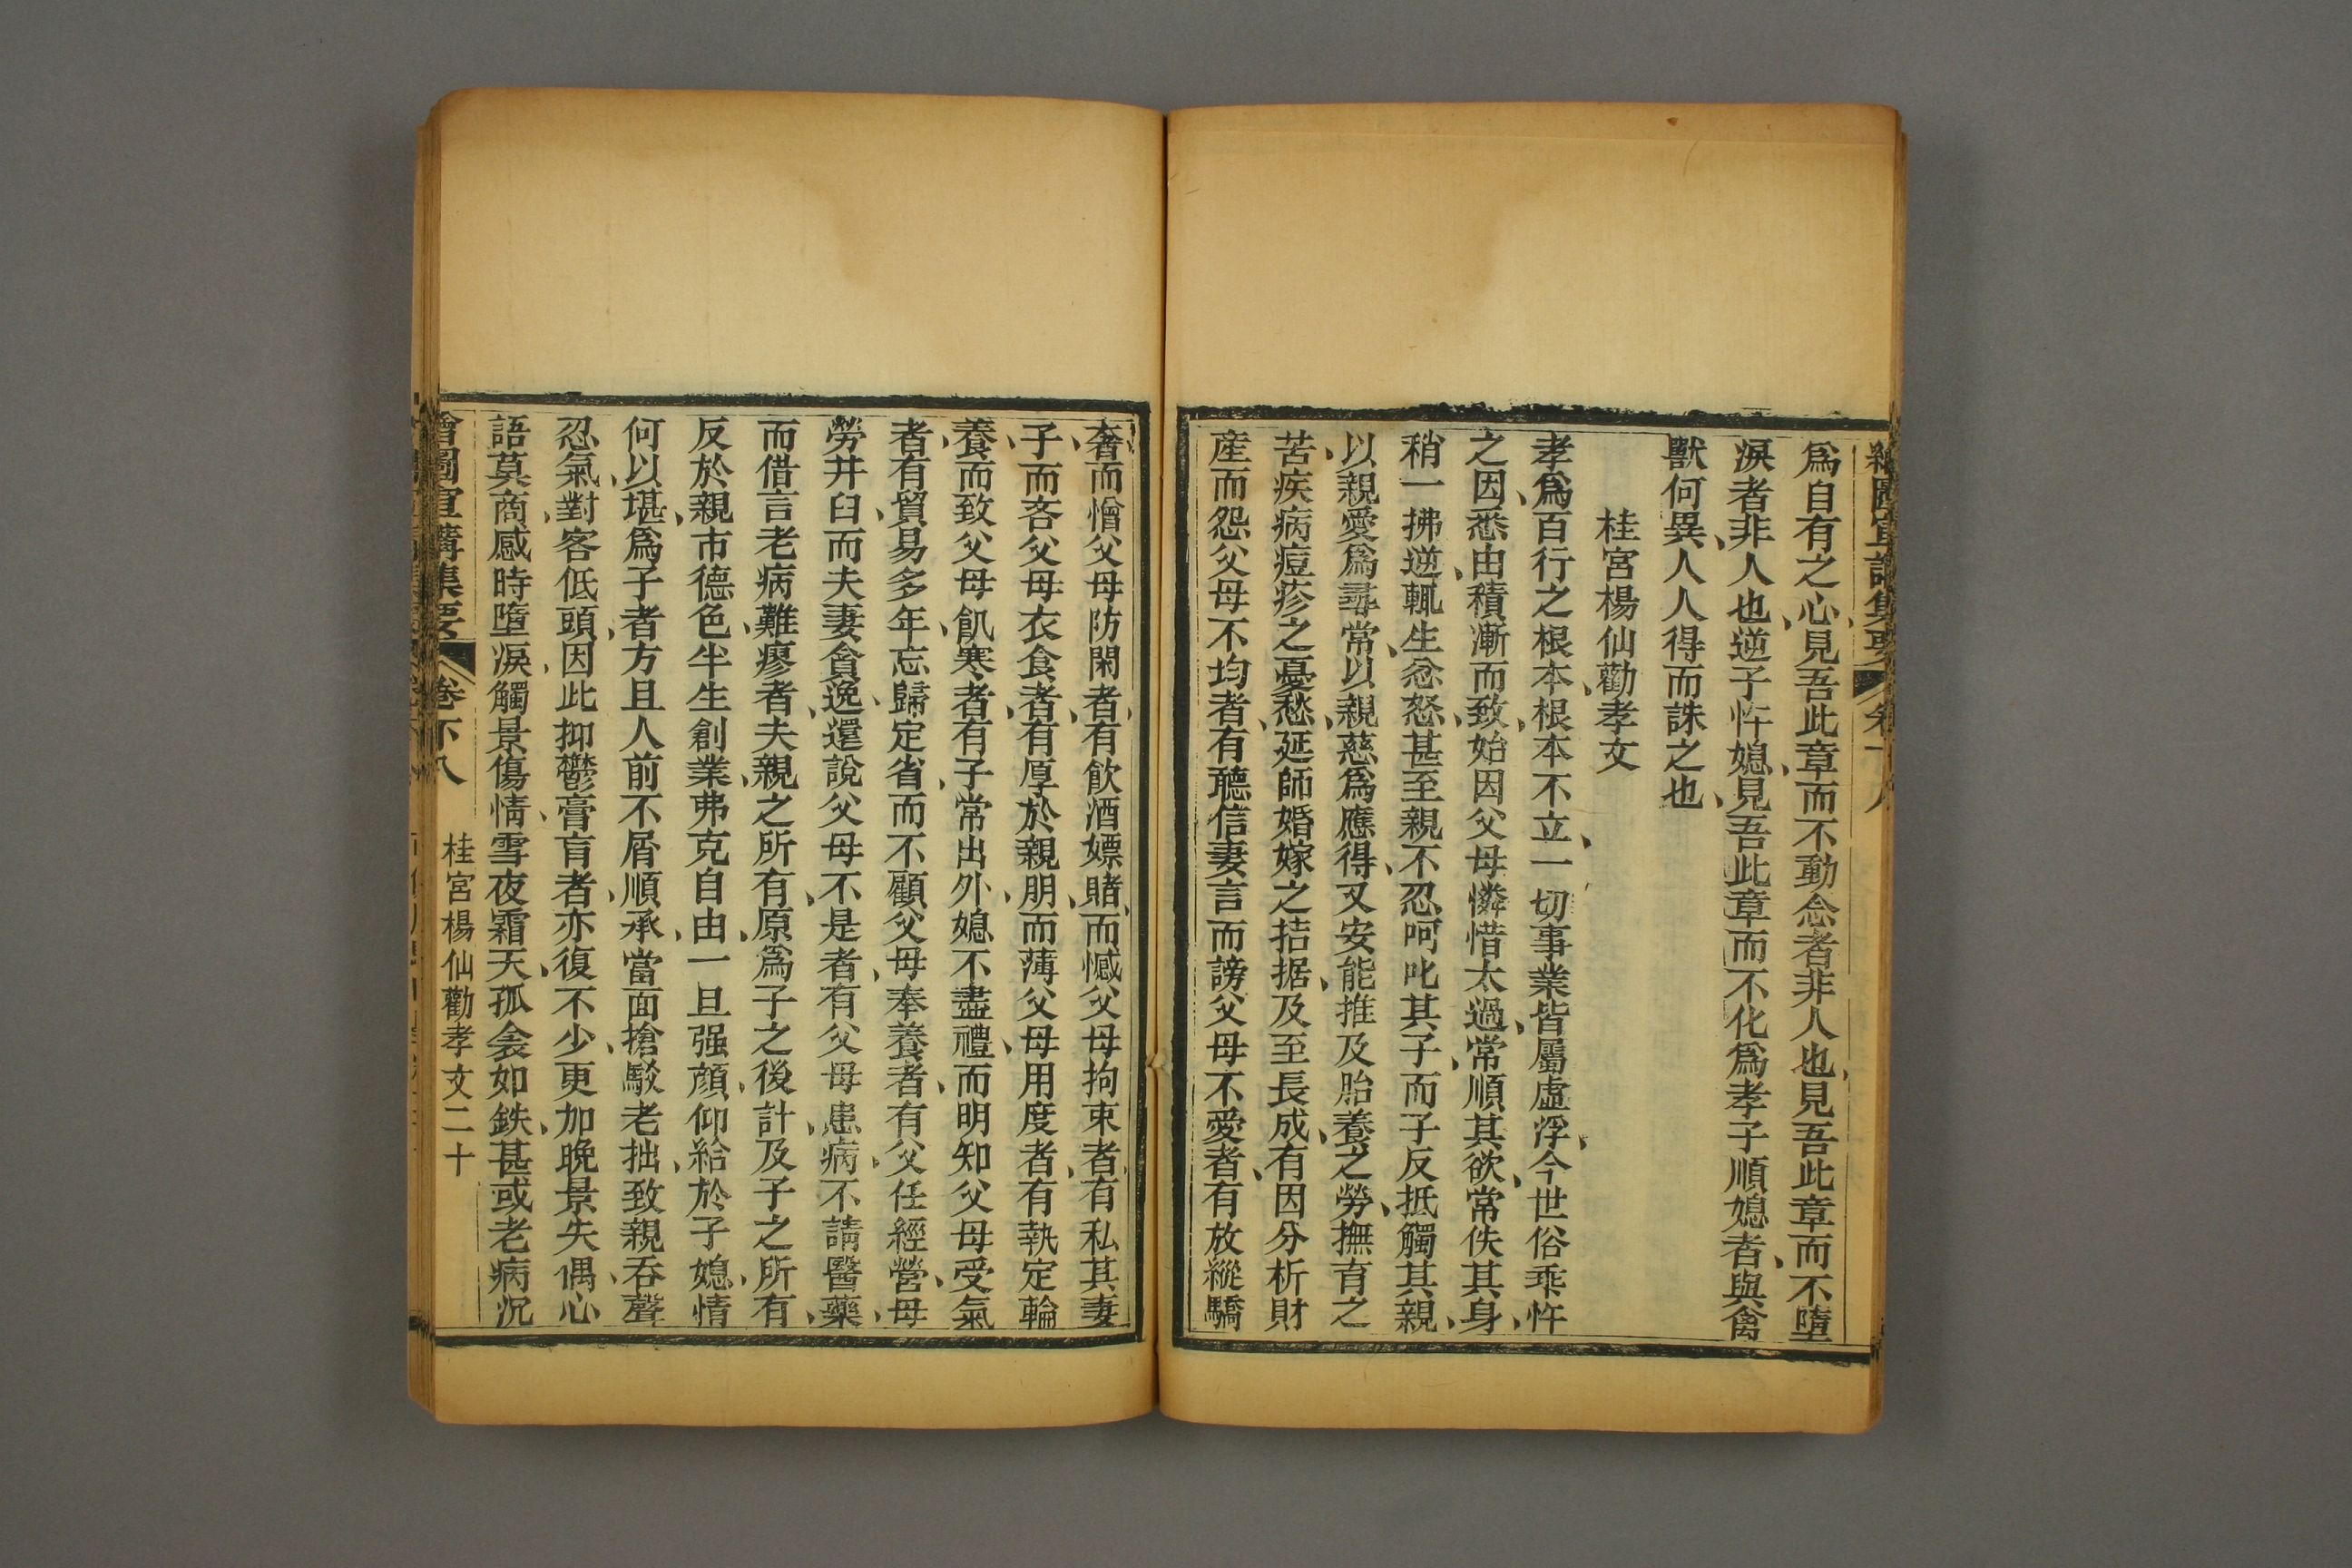 爲自有之心見吾此章而不動念者非人也見吾此章而不墮
淚者非人也逆子忤媳見吾此章而不化爲孝子順媳者與禽
獸何異人人得而誅之也
桂宮楊仙勸孝文
孝爲百行之根本根本不立一切事業皆屬虛浮今世俗乖忤
之因悉由積漸而致始因父母憐惜太過常順其欲常佚其身
稍一拂逆輒生忿怒甚至親不忍呵叱其子而子反抵觸其親
以親愛爲尋常以親慈爲應得又安能推及胎養之勞撫育之
苦疾病痘疹之憂愁延師婚嫁之拮据及至長成有因分析財
產而怨父母不均者有聽信妻言而謗父母不愛者有放縱驕
奢而憎父母防閑者有飲酒嫖賭而憾父母拘束者有私其妻
子而吝父母衣食者有厚於親朋而薄父母用度者有執定輪
養而致父母飢寒者有子常出外媳不盡禮而明知父母受氣
者有貿易多年忘歸定省而不顧父母奉養者有父任經營母
勞井臼而夫妻貪逸還說父母不是者有父母患病不請醫藥
而借言老病難瘳者夫親之所有原爲子之後計及子之所有
反於親市德色半生創業弗克自由一旦强顏仰給於子媳情
何以堪爲子者方且人前不屑順承當面搶駁老拙致親吞聲
忍氣對客低頭因此抑鬱膏肓者亦復不少更加晚景失偶心
語莫商感時墮淚觸景傷情雪夜霜天孤衾如鉄甚或老病沉
繪圖宣講集要 卷下八 桂宮楊仙勸孝文二十